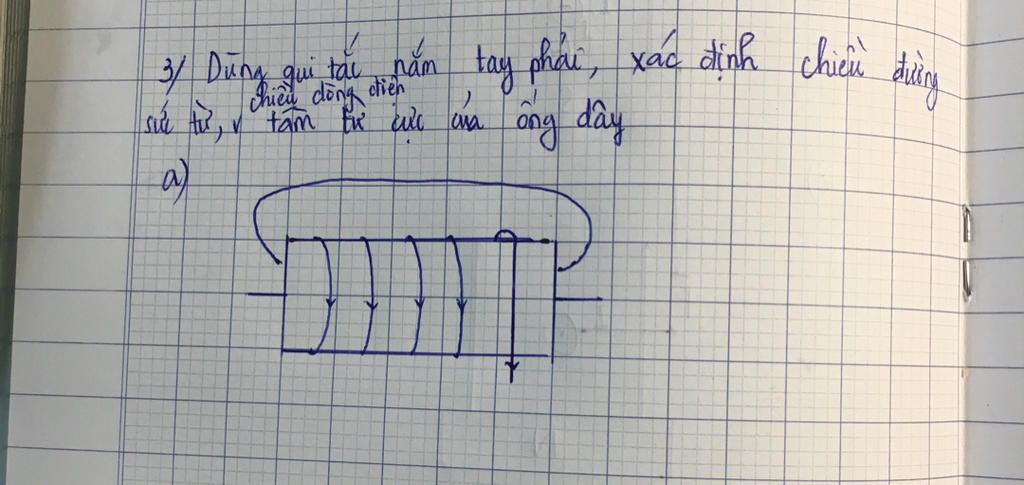 3/ Dùng qui tắc nắm tay phải, xác định chiều đường
chiều dòng điện
sức từ, v tầm từ cực của ống dây
a)